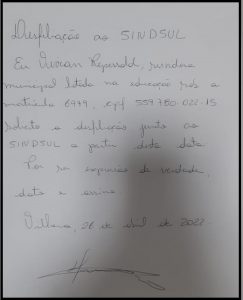 Desfiliação ao SINDSUL
Eu Vivian Repissold, servidora
municipal lotada na educação sob a
matrícula 6979, cpf 559.780.022-15
solicito a desfiliação junto ao
SINDSUL a partir desta data
Por ser expressão da verdade,
dato e assino.
Vilhena, 26 de abril de 2022